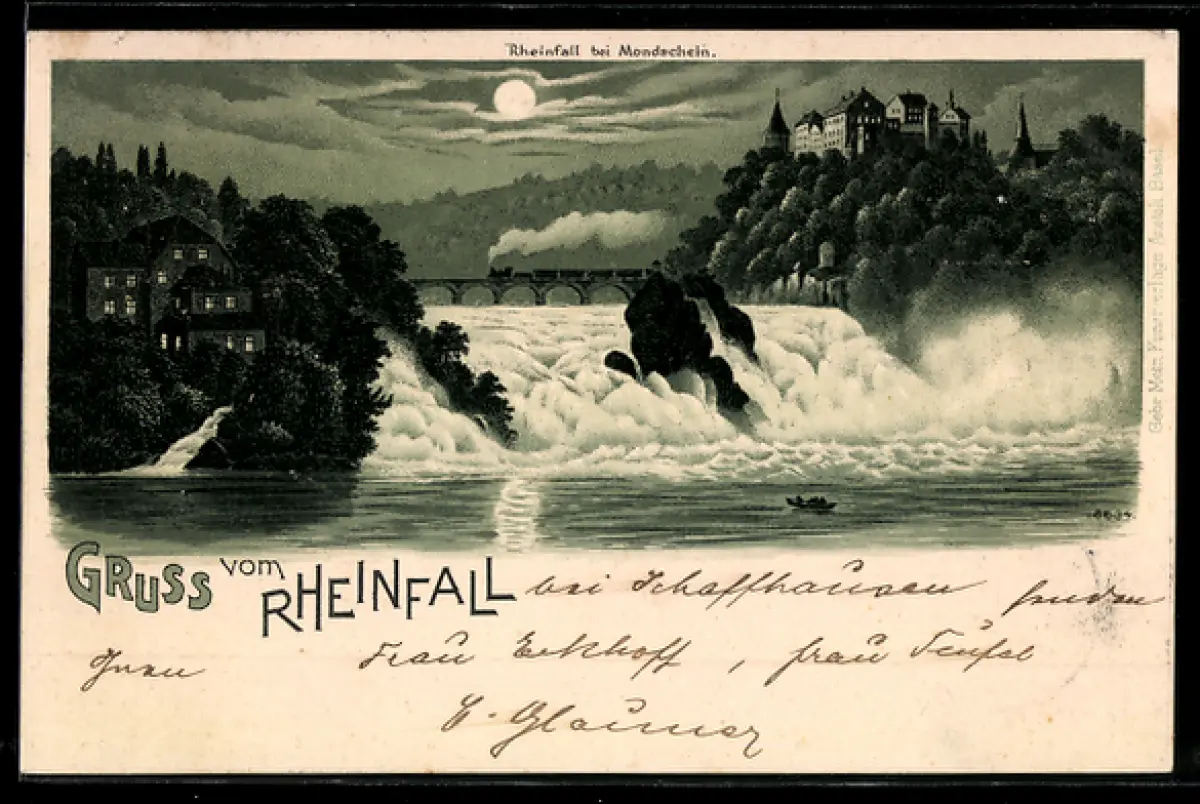 Rheinfall bei Mondschein.
GRUSS vom RHEINFALL bei Schaffhausen senden
Ihnen Frau Eckhoff, frau Teufel
Gebr Metz Kunstverlags Anstalt Basel